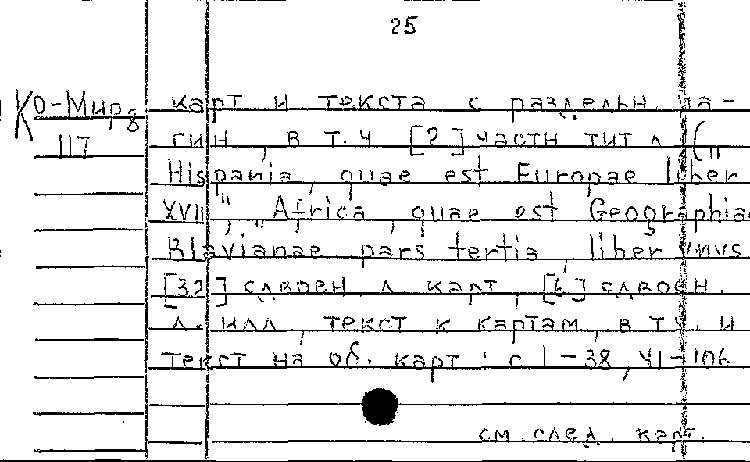 25
Ко-Мирд карт и текста с раздельн. па-
117 гин., в т.ч. [2] части тит. л. („
Hispania, quae est Europae liber
XVI", „Africa, quae est Geographiae
Blavianae pars tertia, liber unus
[32] сдвоен. л. карт, [6] сдвоен.
л. илл., текст к картам, в т.ч. и
текст на об. карт: с. 1-38, 41-106
см. след. карт.